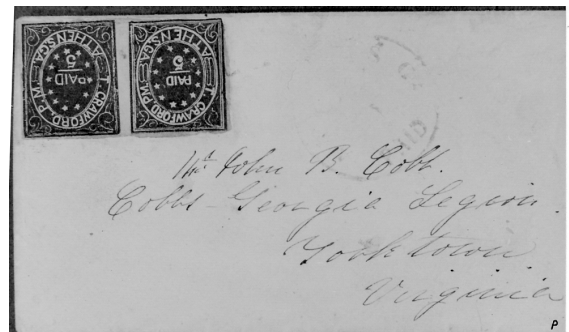 PAID
5
T. CRAWFORD. P.M.
ATHENS.GA.
PAID
5
T. CRAWFORD. P.M.
ATHENS.GA.
PAID
Mr John B. Cobb.
Cobbs Georgia Legion.
Yorktown
Virginia
P